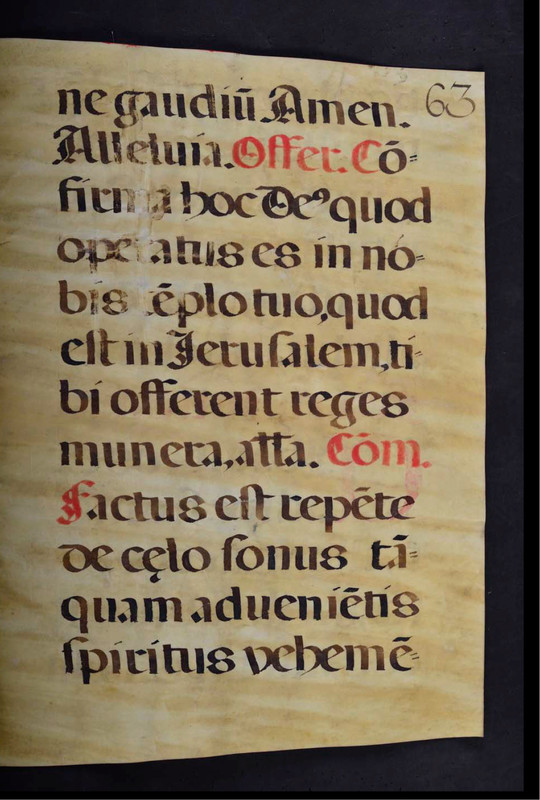 63
ne gaudiū Amen.
Alleluia. Offer. Cō-
firma hoc Deꝰ quod
operatus es in no-
bis tēplo tuo, quod
est in Jerusalem, ti-
bi offerent reges
munera, alła. Cōm.
Factus est repēte
de cęlo sonus tā-
quam adueniētis
spiritus vehemē-